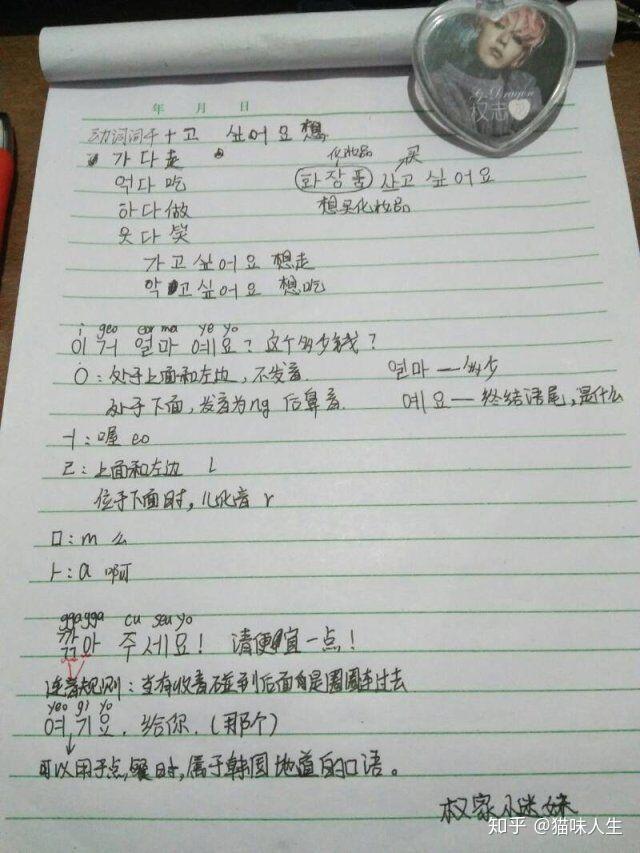 G-Dragon
权志
年 月 日
动词词干 + 고 싶어요 想
가다 走
化妆品 买
먹다 吃
화장품 사고 싶어요
하다 做
想买化妆品
웃다 笑
가고 싶어요 想走
먹고 싶어요 想吃
i geo eor ma ye yo
이거 얼마예요? 这个多少钱?
O: 处于上面和左边, 不发音. 얼마 — 多少
处于下面, 发音为ng 后鼻音. 예요 — 终结语尾, 是什么
ㅓ: 喔 eo
ㄹ: 上面和左边 l
位于下面时, 儿化音 r
ㅁ: m 么
ㅏ: a 啊
ggagga cu seu yo
깎아 주세요! 请便宜一点!
连音规则: 当有收音碰到后面是圈圈连过去
yeo gi yo
여기요. 给你. (那个)
可以用于点餐时, 属于韩国地道的口语。
权家小迷妹
知乎 @猫味人生